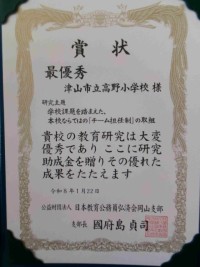 賞状
最優秀
津山市立高野小学校 様
研究主題
学校課題を踏まえた、
本校ならではの「チーム担任制」の取組
貴校の教育研究は大変
優秀であり ここに研究
助成金を贈りその優れた
成果をたたえます
令和6年1月22日
公益財団法人 日本教育公務員弘済会岡山支部
支部長 國府島 貞司